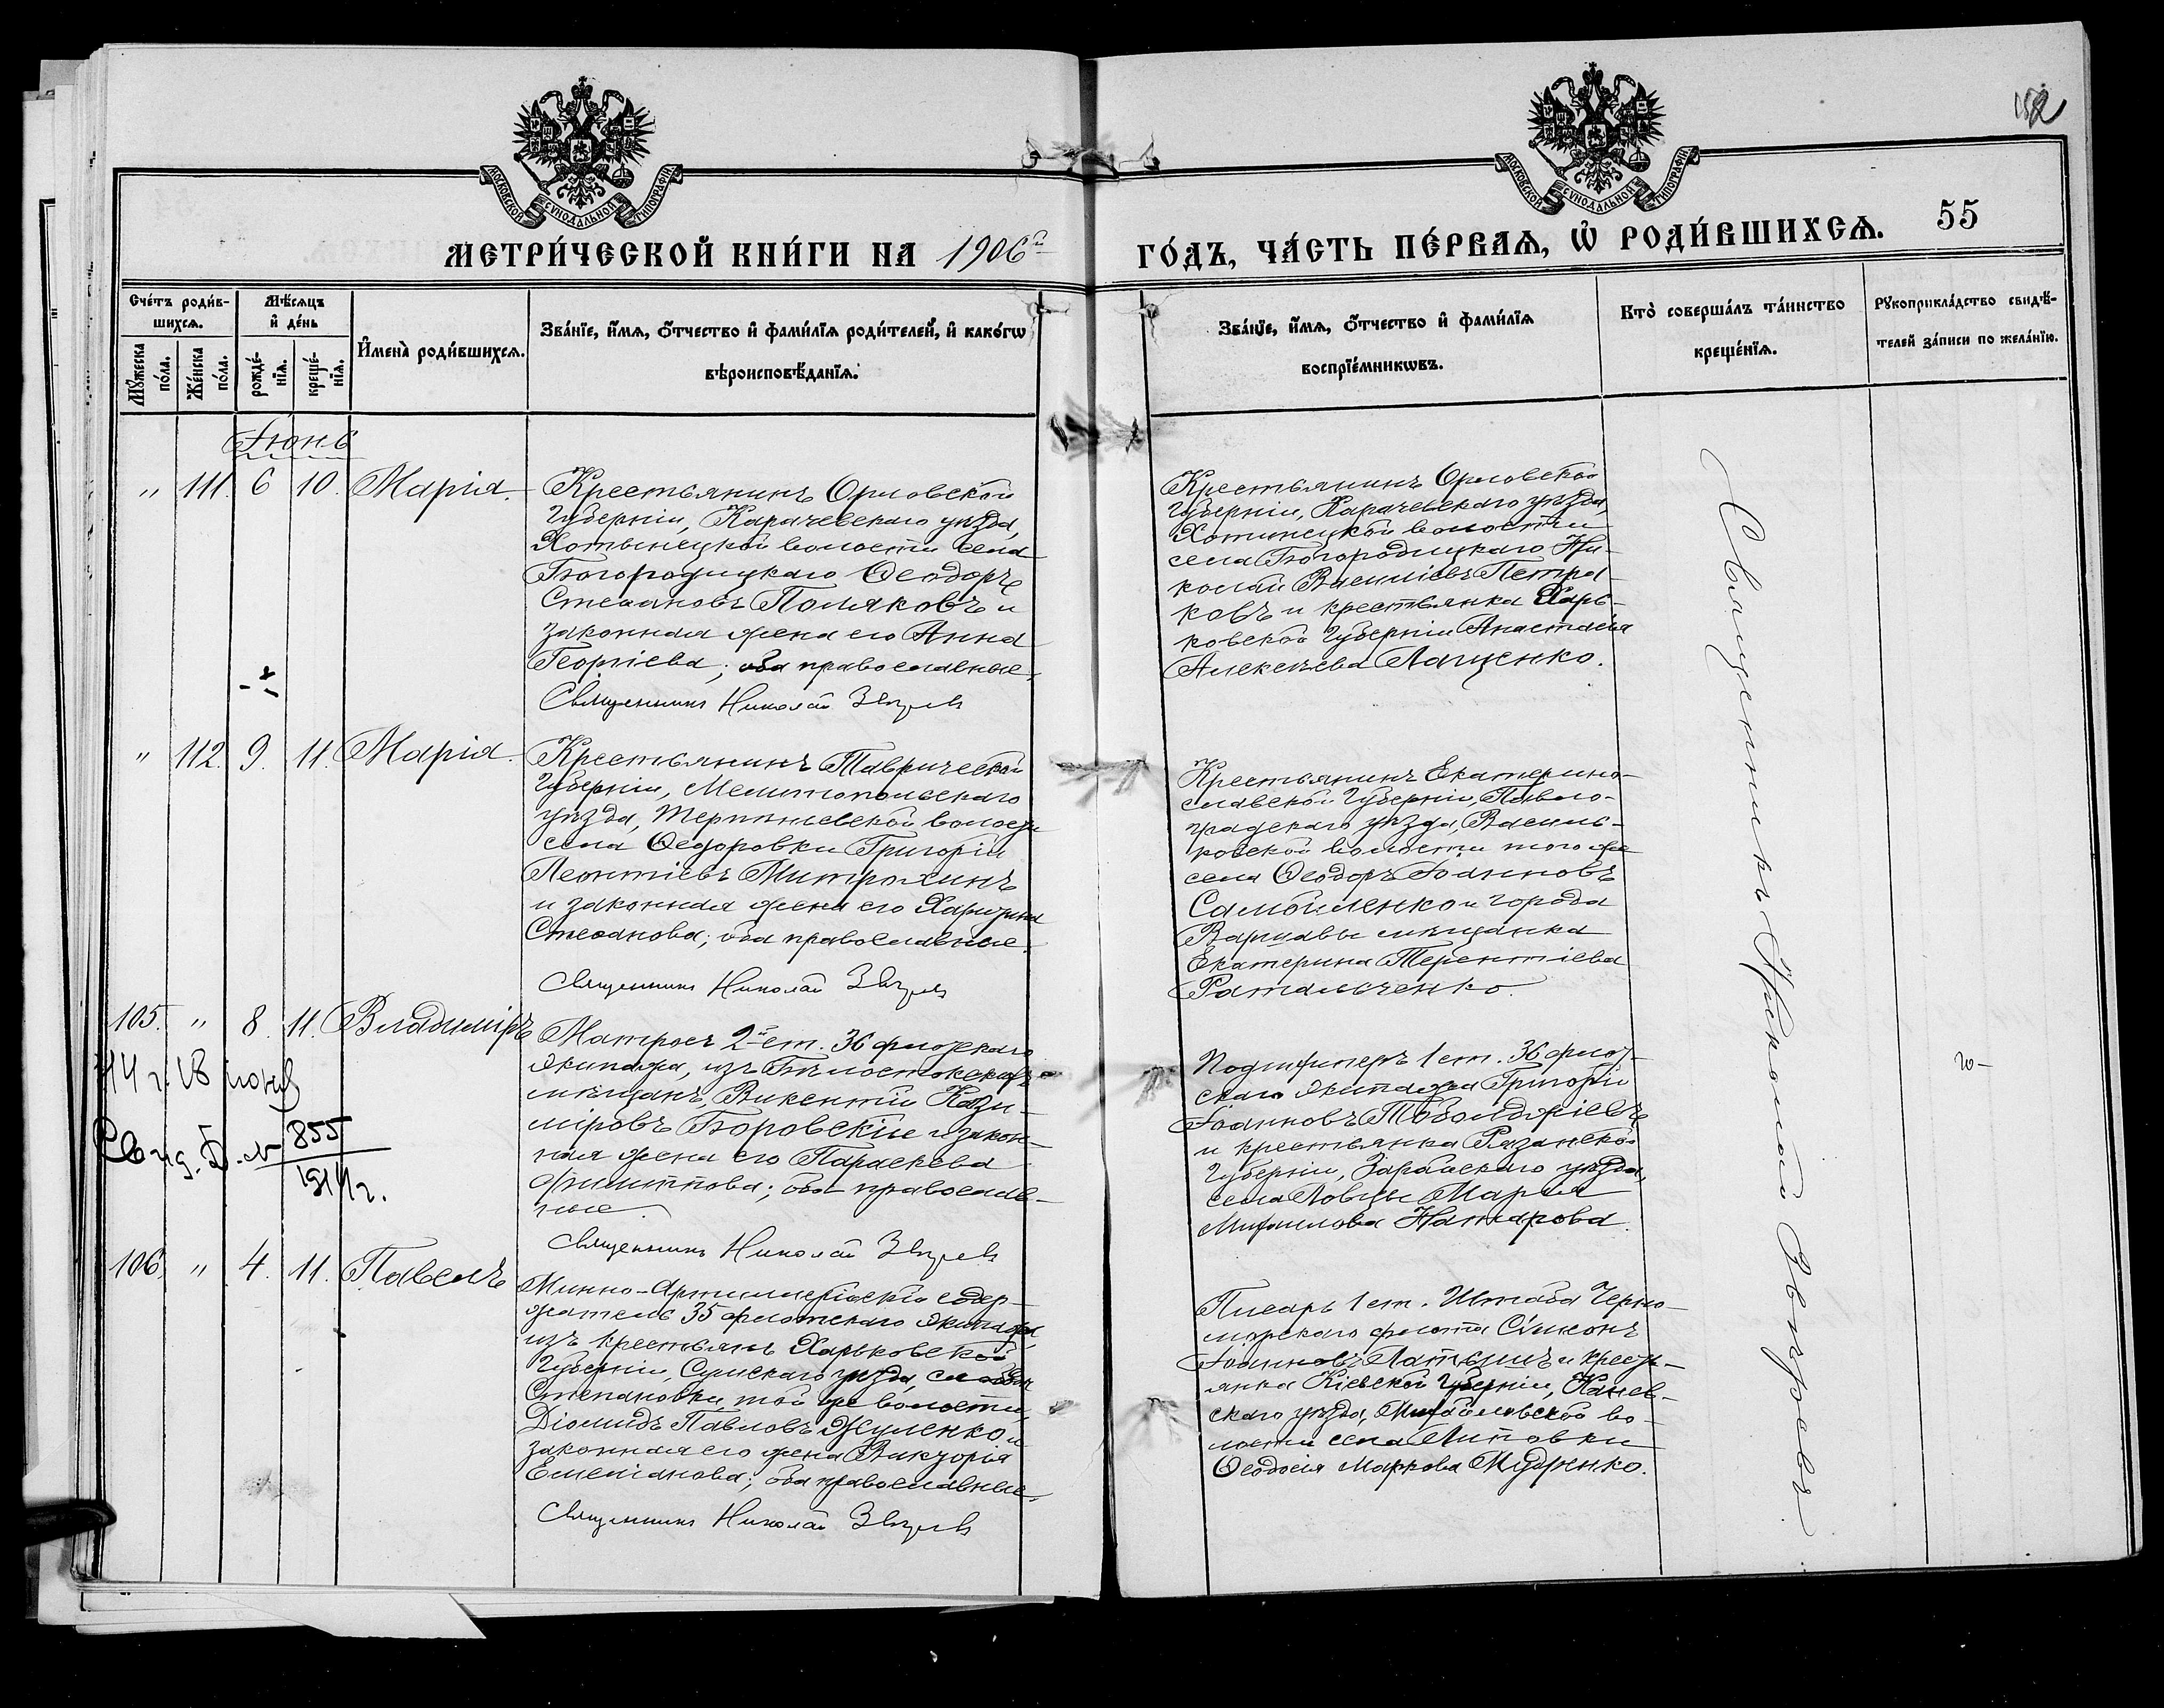 152
МОСКОВСКОЙ СѴНОДАЛЬНОЙ ТИПОГРАФІИ
МОСКОВСКОЙ СѴНОДАЛЬНОЙ ТИПОГРАФІИ
МЕТРИ́ЧЕСКОЙ КНИ́ГИ НА 1906й ГО́ДЪ, ЧА́СТЬ ПЕ́РВАѦ, Ѿ РОДИ́ВШИХСѦ. 55
Сче́тъ роди́в-
шихсѧ.
Мѣ́сѧцъ
и҆ де́нь
Мꙋ́жеска
по́ла.
Же́нска
по́ла.
рожде́-
нїѧ.
креще́-
нїѧ.
И҆мена̀ роди́вшихсѧ.
Зва́нїе, и҆́мѧ, ѻ҆́тчество и҆ фами́лїѧ роди́телей, и҆ како́гѡ
вѣроисповѣ́данїѧ.
Зва́нїе, и҆́мѧ, ѻ҆́тчество и҆ фами́лїѧ
воспрїе́мникѡвъ.
Кто̀ соверша́лъ та́инство
креще́нїѧ.
Рꙋкоприкла́дство свидѣ́-
телей за́писи по жела́нїю.
Іюнь
" 111. 6 10. Марія.
Крестьянинъ Орловской
Губерніи, Карачевскаго уѣзда,
Хотынецкой волости села
Богородицкаго Ѳеодоръ
Степановъ Поляковъ и
законная жена его Анна
Георгіева; оба православные.
Священникъ Николай Звѣревъ
Крестьянинъ Орловской
Губерніи, Карачевскаго уѣзда,
Хотинецкой волости
села Богородицкаго Ни-
колай Василіевъ Петра-
ковъ и крестьянка Харь-
ковской Губерніи Анастасія
Алексѣева Лащенко.
" 112. 9. 11. Марія.
Крестьянинъ Таврической
Губерніи, Мелитопольскаго
уѣзда, Терпѣніевской волости
села Ѳедоровки Григорій
Леонтіевъ Митрохинъ
и законная жена его Харитина
Стефанова; оба православные.
Священникъ Николай Звѣревъ
Крестьянинъ Екатерино-
славской Губерніи, Павло-
градскаго уѣзда, Василь-
ковской волости того же
села Ѳеодоръ Іоанновъ
Самойленко и города
Варшавы мѣщанка
Екатерина Терентіева
Ратальченко.
105. " 8. 11. Владиміръ
44 г. 18 іюня
Свид. Б. № 855
1914 г.
Матросъ 2й ст. 36 флотскаго
экипажа, изъ Бѣлостокскихъ
мѣщанъ, Викентій Кази-
міровъ Боровскій и закон-
ная жена его Параскева
Филиппова; оба православ-
ные.
Священникъ Николай Звѣревъ
Подшкиперъ 1 ст. 36 флот-
скаго экипажа Григорій
Іоанновъ
и крестьянка Рязанской
Губерніи, Зарайскаго уѣзда,
села Ловцы Марія
Михаилова Натарова.
106. " 4. 11. Павелъ
Минно-Артиллерійскій содер-
жатель 35 флотскаго экипажа,
изъ крестьянъ Харьковской
Губерніи, Сумскаго уѣзда, слободы
Степановки, той же волости,
Діомидъ Павловъ Жуленко и
законная его жена Викторія
Емельянова; оба православные.
Священникъ Николай Звѣревъ
Писарь 1 ст. Штаба Черно-
морскаго флота Сѵмеонъ
Іоанновъ Латышъ и кресть-
янка Кіевской Губерніи, Канев-
скаго уѣзда, Михайловской во-
лости села Липовки
Ѳеодосія Маркова Мудренко.
Священникъ Николай Звѣревъ